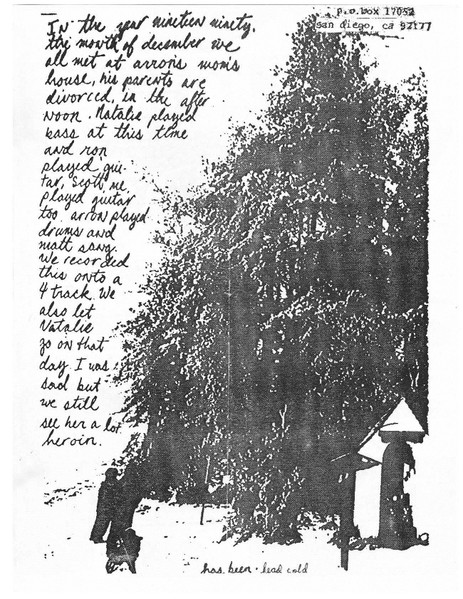 In the year nineteen ninety,
the month of december we
all met at arrons mom's
house, his parents are
divorced, in the after
noon. Natalie played
bass at this time
and ron
played gui-
tar, scott me
played guitar
too arron played
drums and
matt sang.
We recorded
this onto a
4 track. We
also let
Natalie
go on that
day. I was
sad but
we still
see her a lot.
heroin.
p.o.box 17052
san diego, ca 92177
has been · lead cold